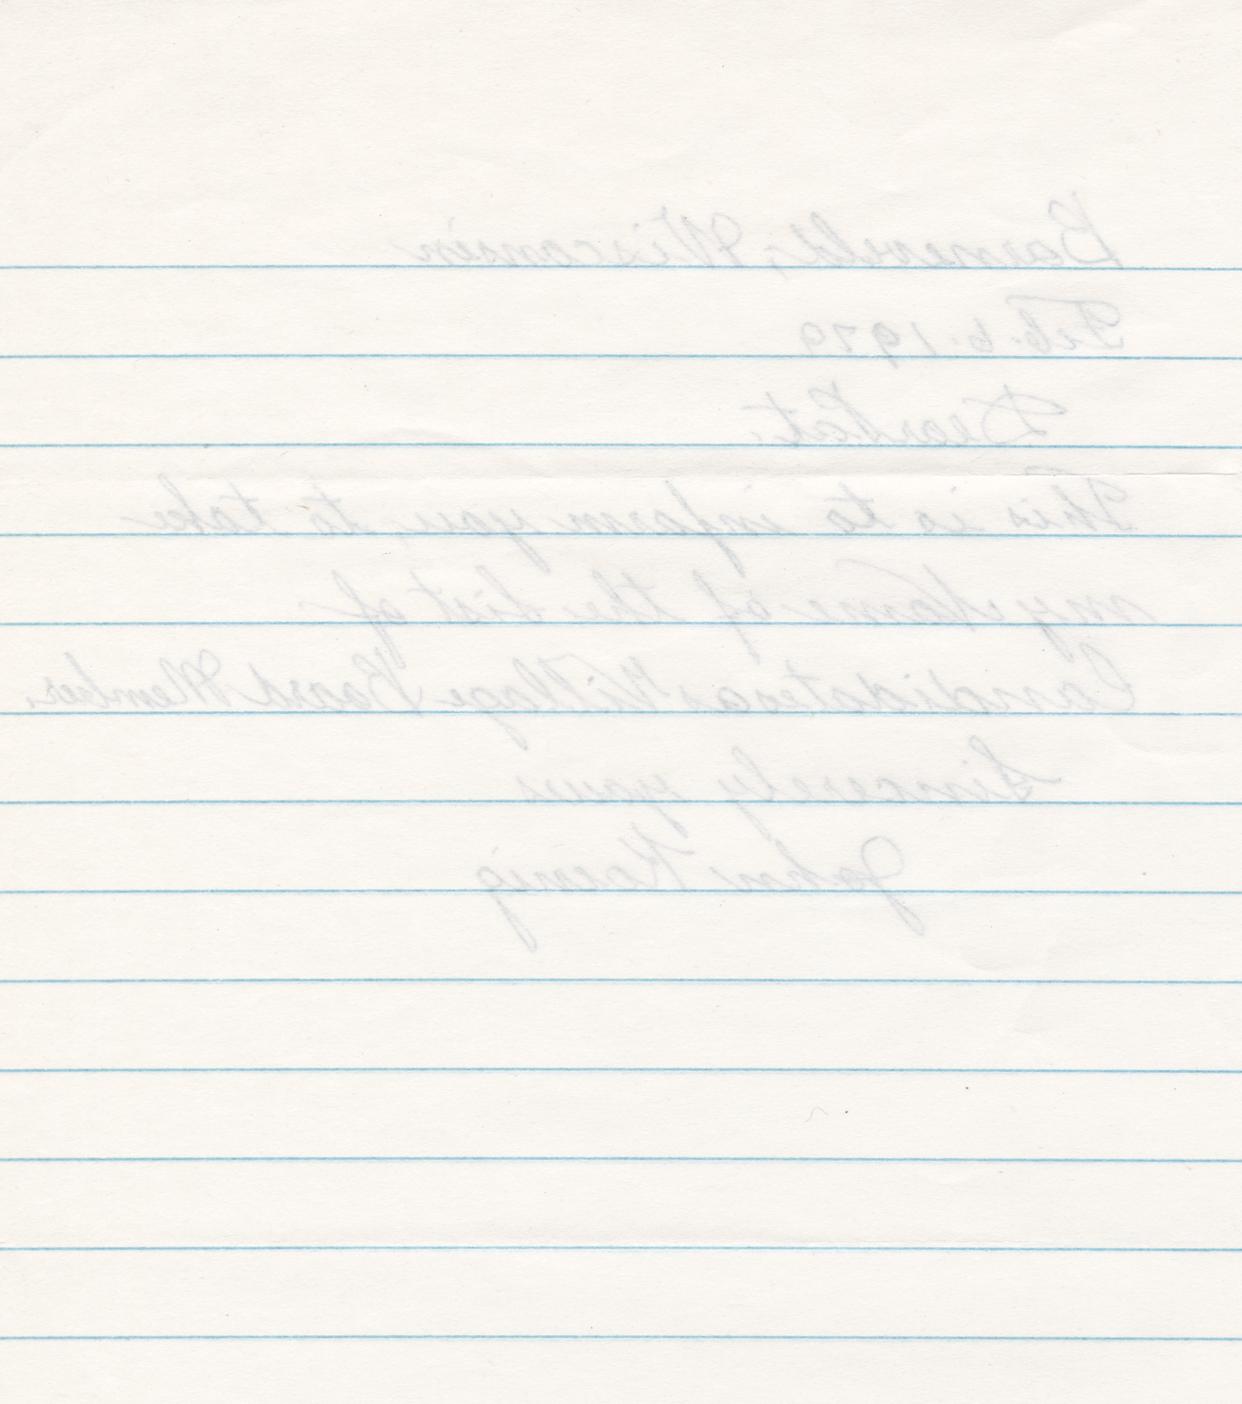 Barneveld, Wisconsin
Feb. 6. 1979
Dear Pat.
This is to inform you, to take
my Name of the List of
Candidate as Village Board Member.
Sincerely yours
John Koenig